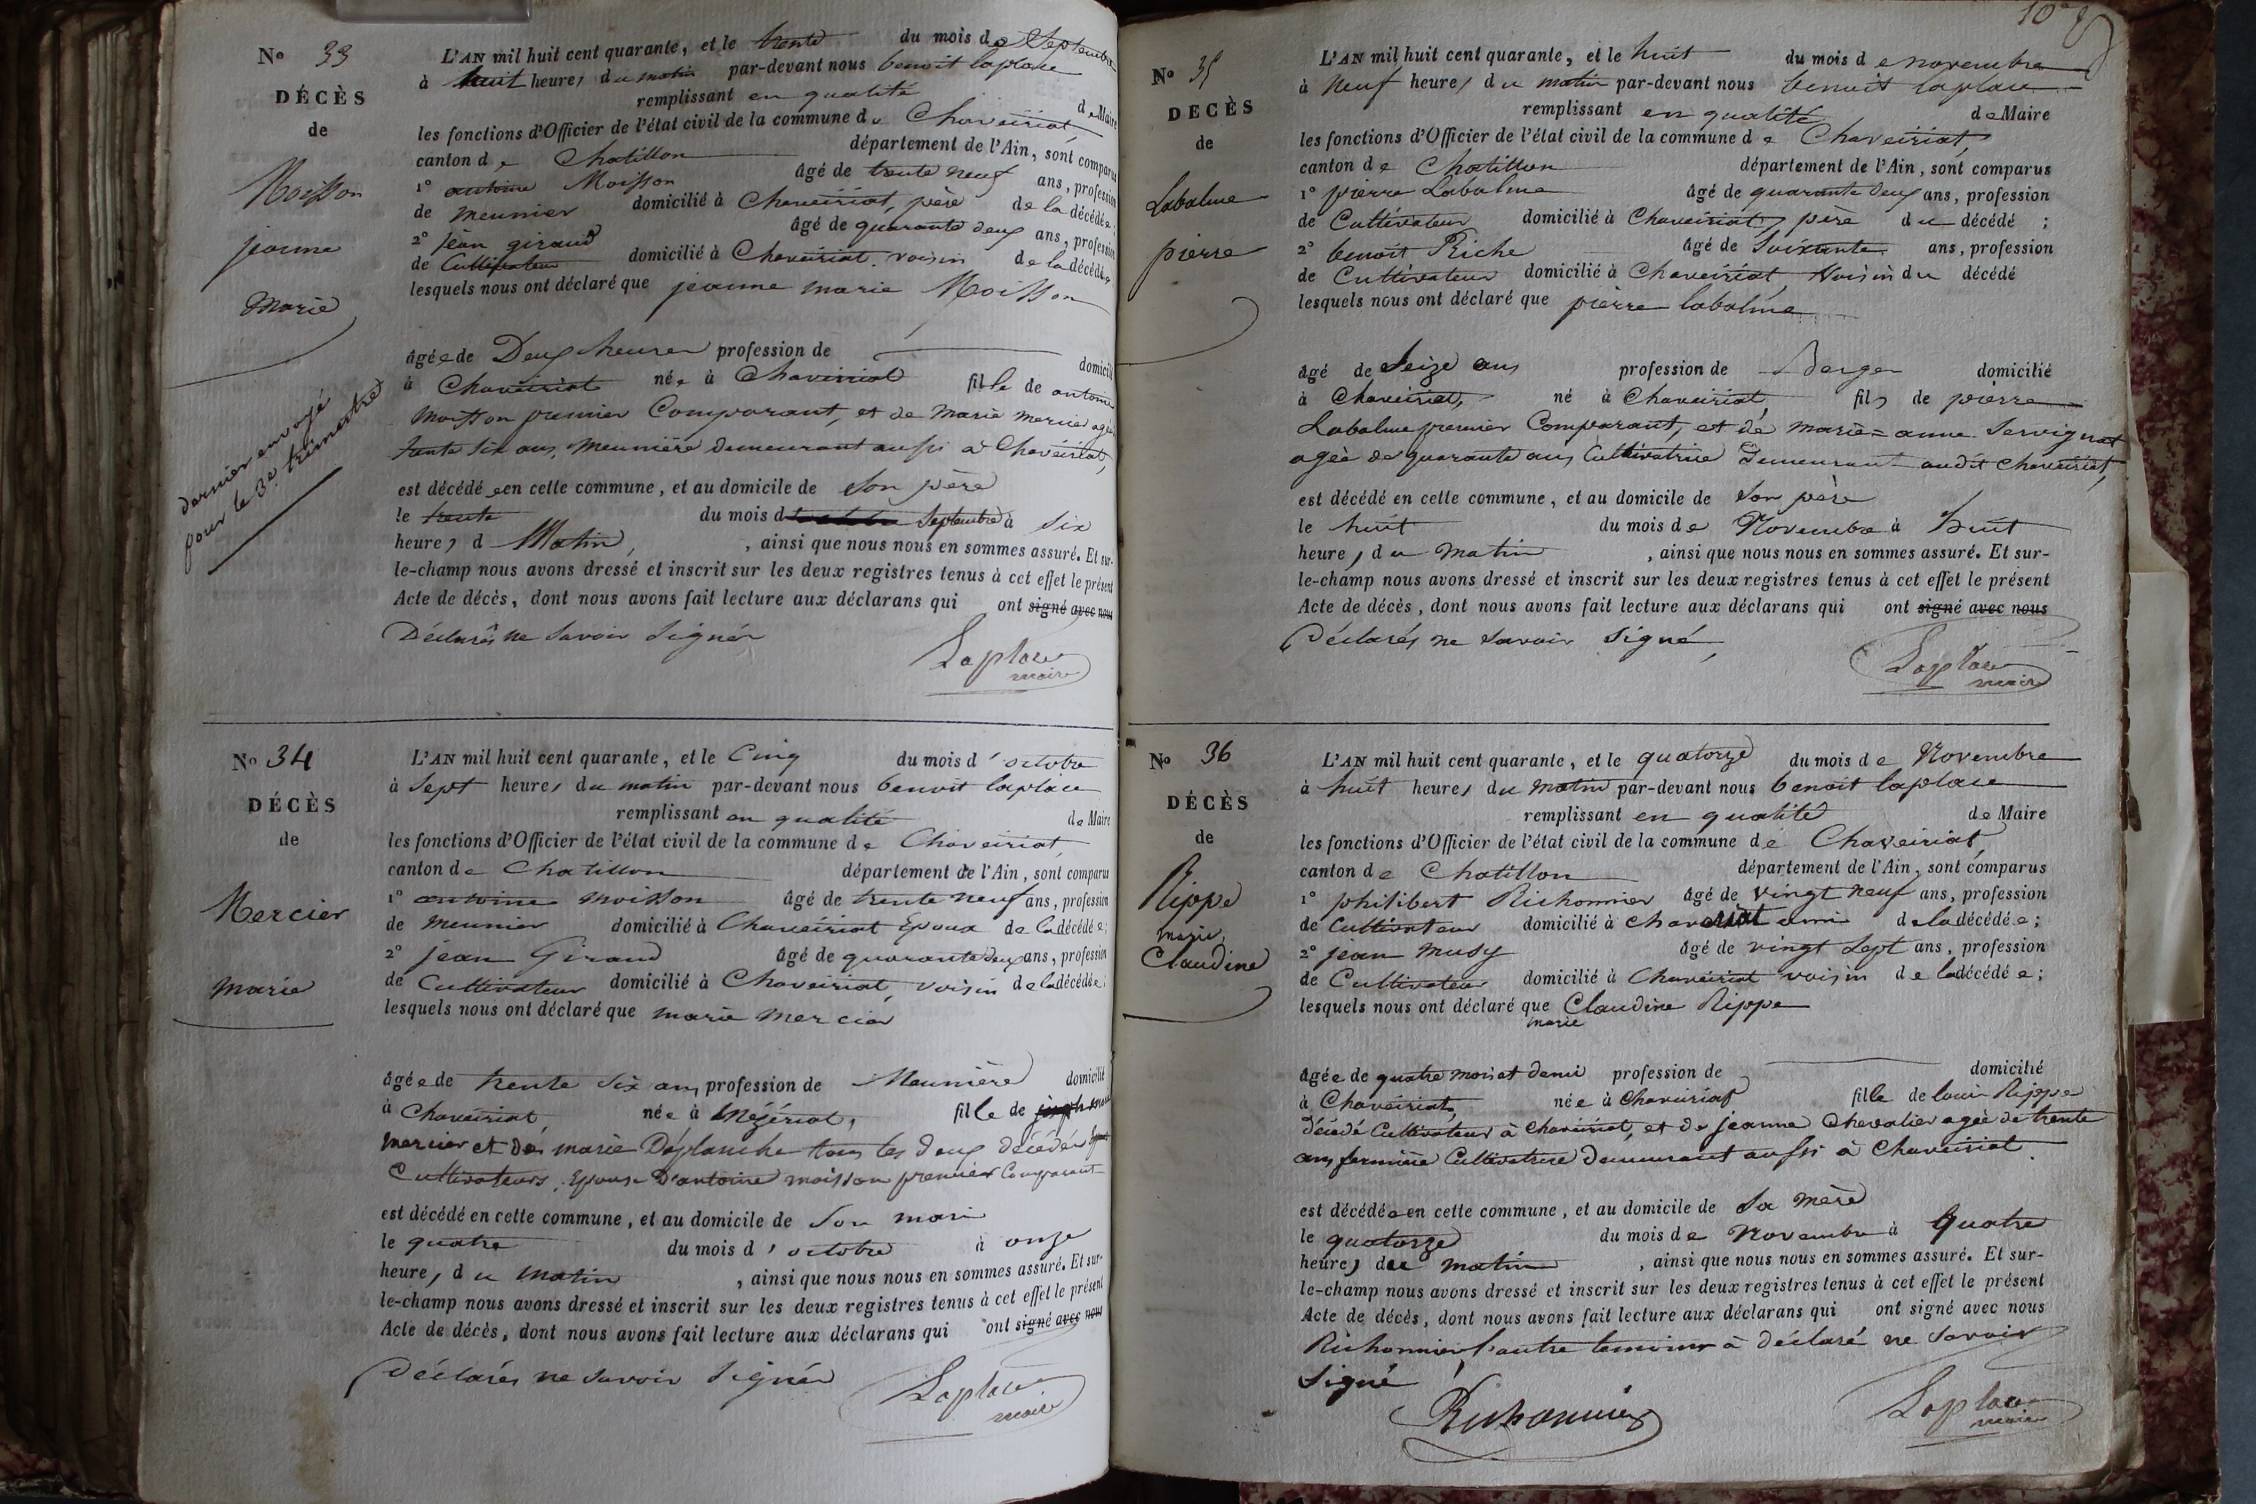 No 33
DÉCÈS
de
Moisson
jeanne
marie
dernier envoyé
pour le 3e trimestre
L'AN mil huit cent quarante, et le trente du mois de Septembre
à huit heures du matin par-devant nous benoit laplace
remplissant en qualité de Maire
les fonctions d'Officier de l'état civil de la commune de Chaveiriat,
canton de Chatillon département de l'Ain, sont comparus
1° antoine Moisson âgé de trente neuf ans, profession
de meunier domicilié à Chaveiriat, père de la décédée;
2° jean giraud âgé de quarante deux ans, profession
de Cultivateur domicilié à Chaveiriat voisin de la décédée
lesquels nous ont déclaré que jeanne marie Moisson
âgée de Deux heures profession de domicilié
à Chaveiriat née à Chaveiriat fille de antoine
moisson premier Comparant, et de marie mercier agée
trente six ans, meunière demeurant aussi à Chaveiriat,
est décédée en cette commune, et au domicile de son père
le trente du mois d Septembre à six
heures d Matin, , ainsi que nous nous en sommes assuré. Et sur-
le-champ nous avons dressé et inscrit sur les deux registres tenus à cet effet le présent
Acte de décès, dont nous avons fait lecture aux déclarans qui ont signé avec nous
Déclarés ne savoir signér
Laplace
maire
No 34
DÉCÈS
de
Mercier
marie
L'AN mil huit cent quarante, et le Cinq du mois d'octobre
à sept heures du matin par-devant nous benoit laplace
remplissant en qualité de Maire
les fonctions d'Officier de l'état civil de la commune de Chaveiriat,
canton de Chatillon département de l'Ain, sont comparus
1° antoine moisson âgé de trente neuf ans, profession
de meunier domicilié à Chaveiriat Epoux de la décédée;
2° jean Giraud âgé de quarante deux ans, profession
de Cultivateur domicilié à Chaveiriat, voisin de la décédée;
lesquels nous ont déclaré que marie mercier
âgée de trente six ans profession de Meunière domicilié
à Chaveiriat, née à Mézériat, fille de
mercier et de marie Déplanche tous les deux décédés
Cultivateurs, Epouse D'antoine moisson premier Comparant
est décédé en cette commune, et au domicile de son mari
le quatre du mois d'octobre à onze
heures du matin , ainsi que nous nous en sommes assuré. Et sur-
le-champ nous avons dressé et inscrit sur les deux registres tenus à cet effet le présent
Acte de décès, dont nous avons fait lecture aux déclarans qui ont signé avec nous
Déclarés ne savoir signér
Laplace
maire
No 35
DÉCÈS
de
Labalme
pierre
L'AN mil huit cent quarante, et le huit du mois de novembre
à neuf heures du matin par-devant nous benoit laplace
remplissant en qualité de Maire
les fonctions d'Officier de l'état civil de la commune de Chaveiriat,
canton de Chatillon département de l'Ain, sont comparus
1° pierre Labalme âgé de quarante deux ans, profession
de Cultivateur domicilié à Chaveiriat, père du décédé;
2° benoit Riche âgé de Soixante ans, profession
de Cultivateur domicilié à Chaveiriat, Voisin du décédé
lesquels nous ont déclaré que pierre labalme
âgé de Seize ans profession de Berger domicilié
à Chaveiriat, né à Chaveiriat, fils de pierre
Labalme premier Comparant, et de marie=anne Servignat
agée de quarante ans Cultivatrice Demeurant audit Chaveiriat,
est décédé en cette commune, et au domicile de son père
le huit du mois de Novembre à huit
heures du matin , ainsi que nous nous en sommes assuré. Et sur-
le-champ nous avons dressé et inscrit sur les deux registres tenus à cet effet le présent
Acte de décès, dont nous avons fait lecture aux déclarans qui ont signé avec nous
Déclarés ne savoir signé,
Laplace
maire
No 36
DÉCÈS
de
Rippe
marie,
Claudine
L'AN mil huit cent quarante, et le quatorze du mois de Novembre
à huit heures du matin par-devant nous benoit laplace
remplissant en qualité de Maire
les fonctions d'Officier de l'état civil de la commune de Chaveiriat,
canton de Chatillon département de l'Ain, sont comparus
1° philibert Richonnier âgé de vingt neuf ans, profession
de Cultivateur domicilié à chaveiriat ami de la décédée;
2° jean musy âgé de vingt sept ans, profession
de Cultivateur domicilié à Chaveiriat voisin de la décédée;
lesquels nous ont déclaré que Claudine Rippe
marie
âgée de quatre mois et demi profession de domicilié
à Chaveiriat, née à Chaveiriat fille de louis Rippe
décédé Cultivateur à chaveiriat, et de jeanne Chevalier agée de trente
ans fermière Cultivatrice demeurant aussi à Chaveiriat.
est décédée en cette commune, et au domicile de sa mère
le quatorze du mois de Novembre à quatre
heures du matin , ainsi que nous nous en sommes assuré. Et sur-
le-champ nous avons dressé et inscrit sur les deux registres tenus à cet effet le présent
Acte de décès, dont nous avons fait lecture aux déclarans qui ont signé avec nous
Richonnier l'autre temoins à déclaré ne savoir
signé
Richonnier
Laplace
maire